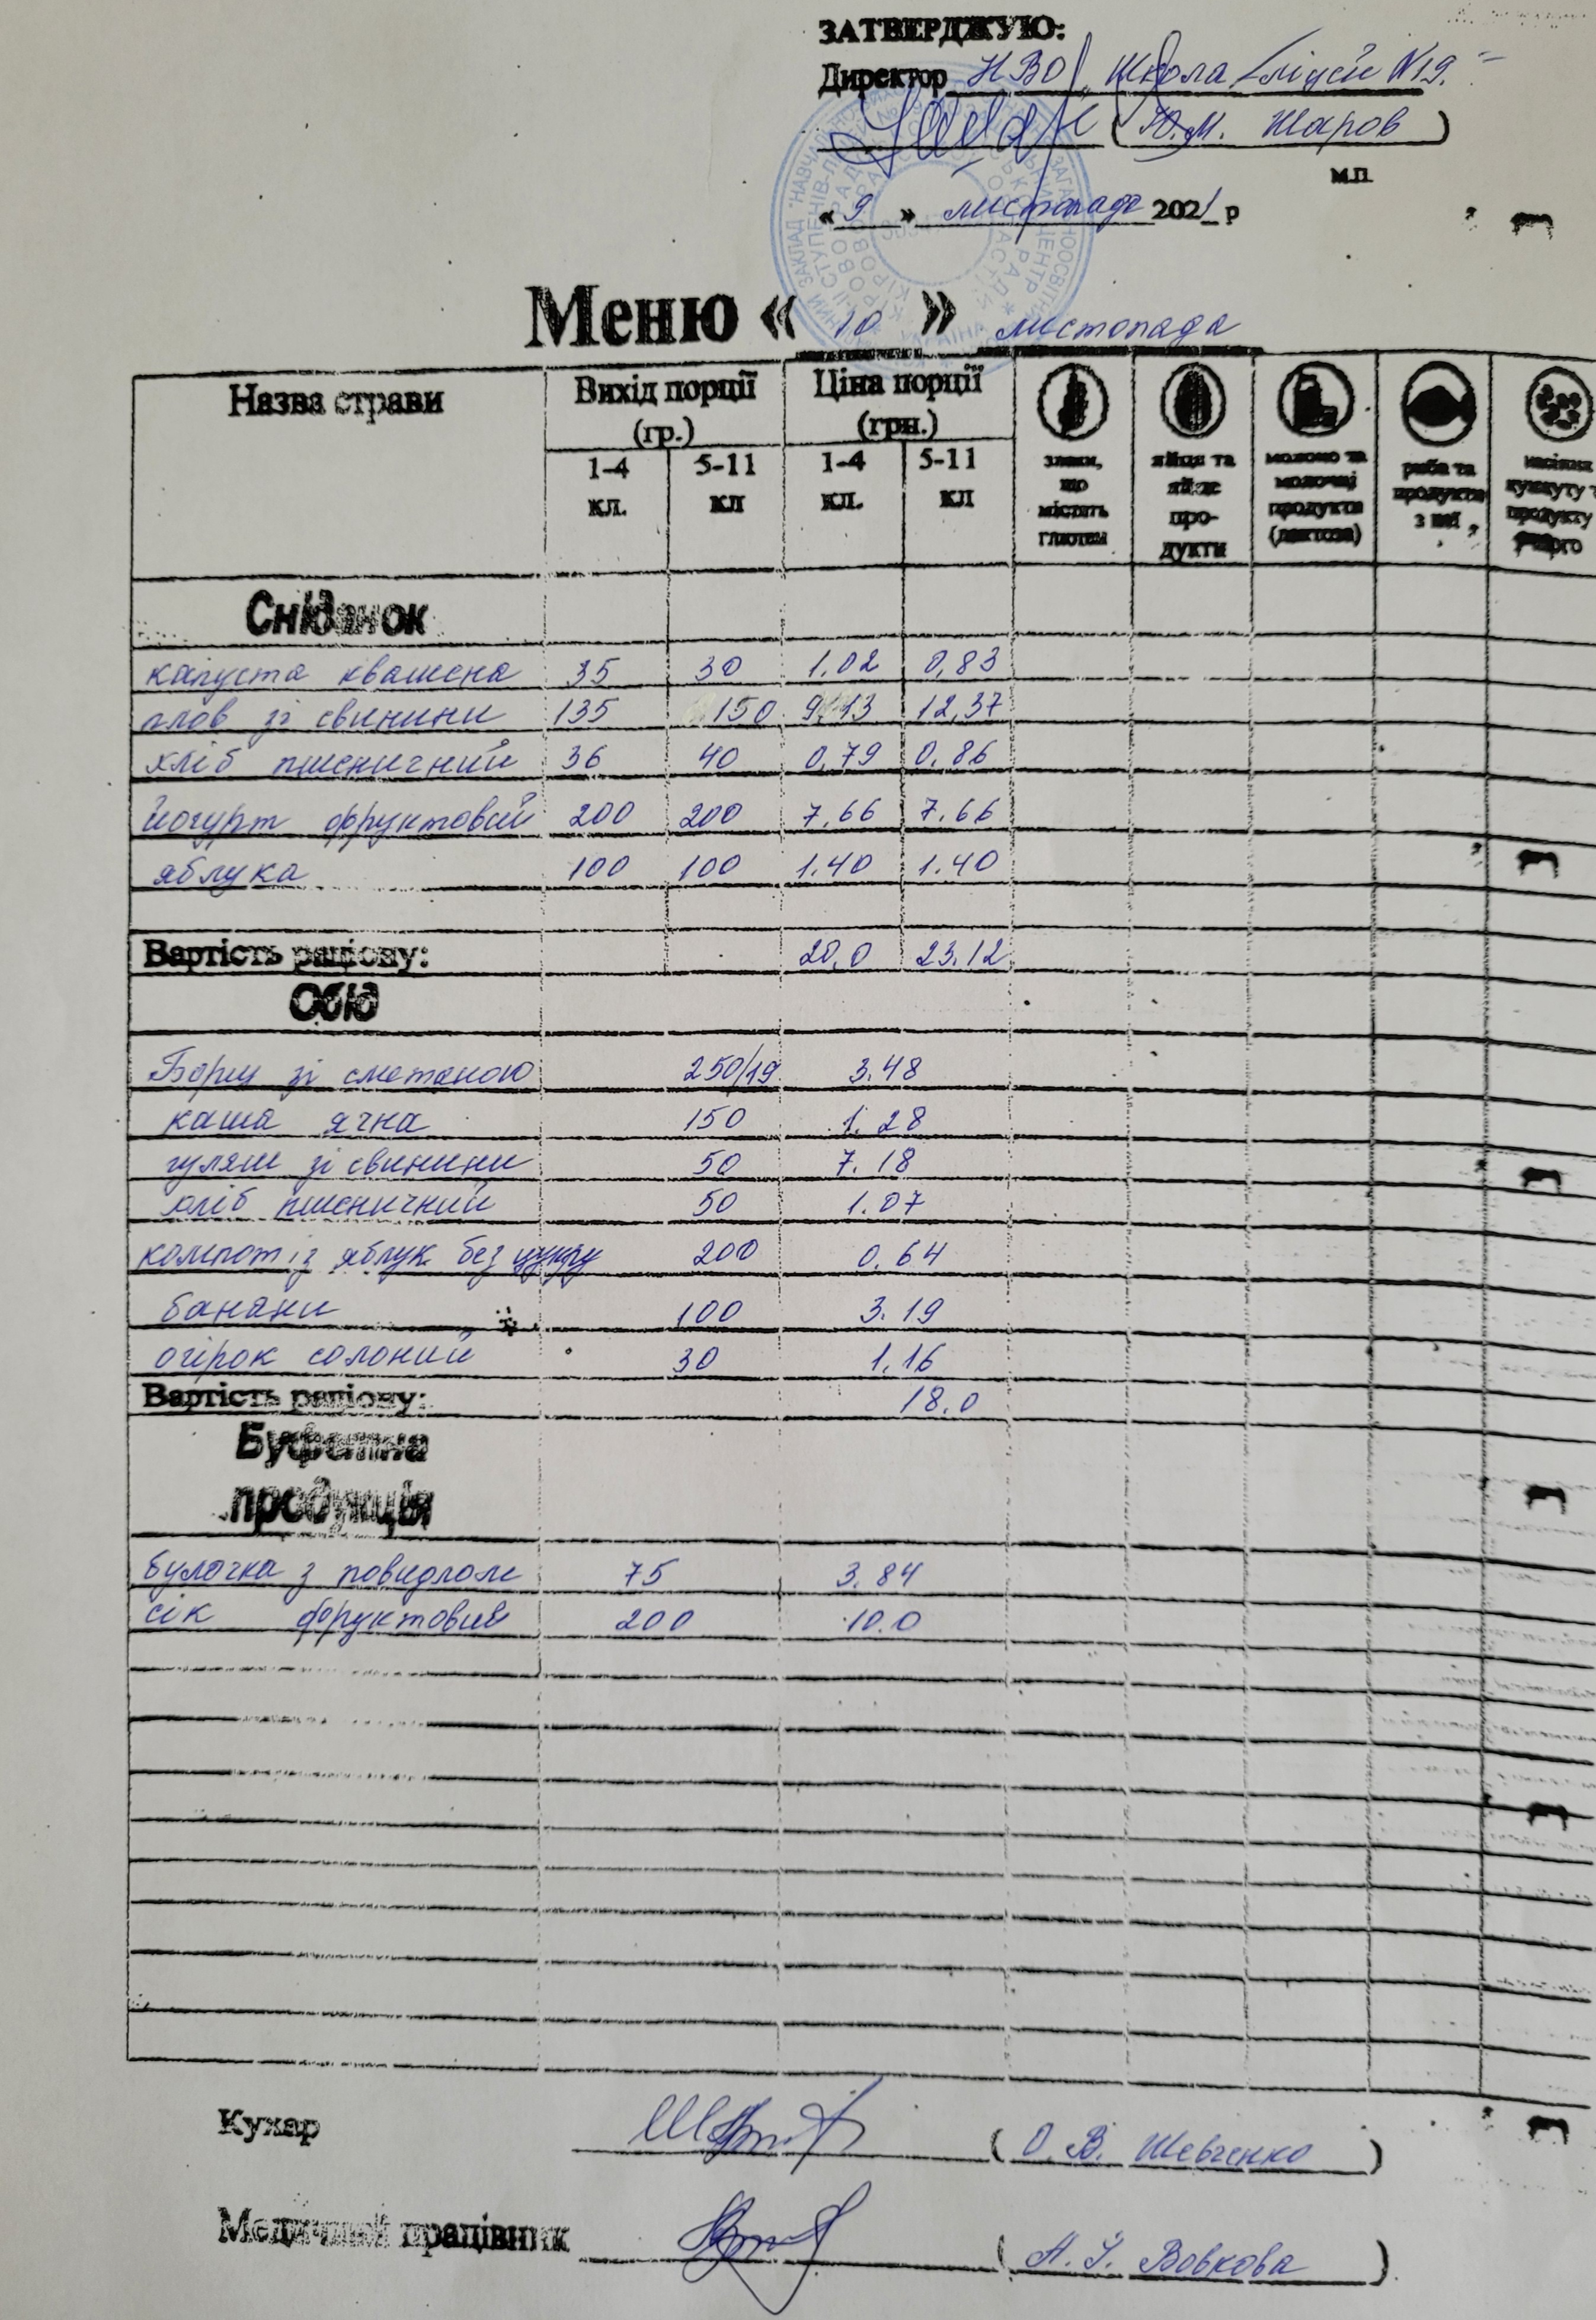 ЗАТВЕРДЖУЮ:
Директор НВО „Школа-ліцей №19."
(Ю.М. Жаров)
м.п.
« 9 » листопада 2021 р
Меню « 10 » листопада
Назва страви Вихід порції (гр.) Ціна порції (грн.)
1-4 кл. 5-11 кл 1-4 кл. 5-11 кл
злаки, що містять глютен
яйця та яйце продукти
молоко та молочні продукти (лактоза)
риба та продукти з неї
насіння кунжуту
Сніданок
капуста квашена 35 30 1.02 0,83
плов зі свинини 135 150 9.13 12,37
хліб пшеничний 36 40 0,79 0,86
йогурт фруктовий 200 200 7.66 7.66
яблука 100 100 1.40 1.40
Вартість раціону: 20,0 23.12
Обід
Борщ зі сметаною 250/19 3.48
каша ячна 150 1.28
гуляш зі свинини 50 7.18
хліб пшеничний 50 1.07
компот із яблук без цукру 200 0.64
банани 100 3.19
огірок солоний 30 1.16
Вартість раціону: 18.0
Буфетна
продукція
булочка з повидлом 75 3.84
сік фруктовий 200 10.0
Кухар (О. В. Шевченко)
Медичний працівник (А. І. Вовкова)